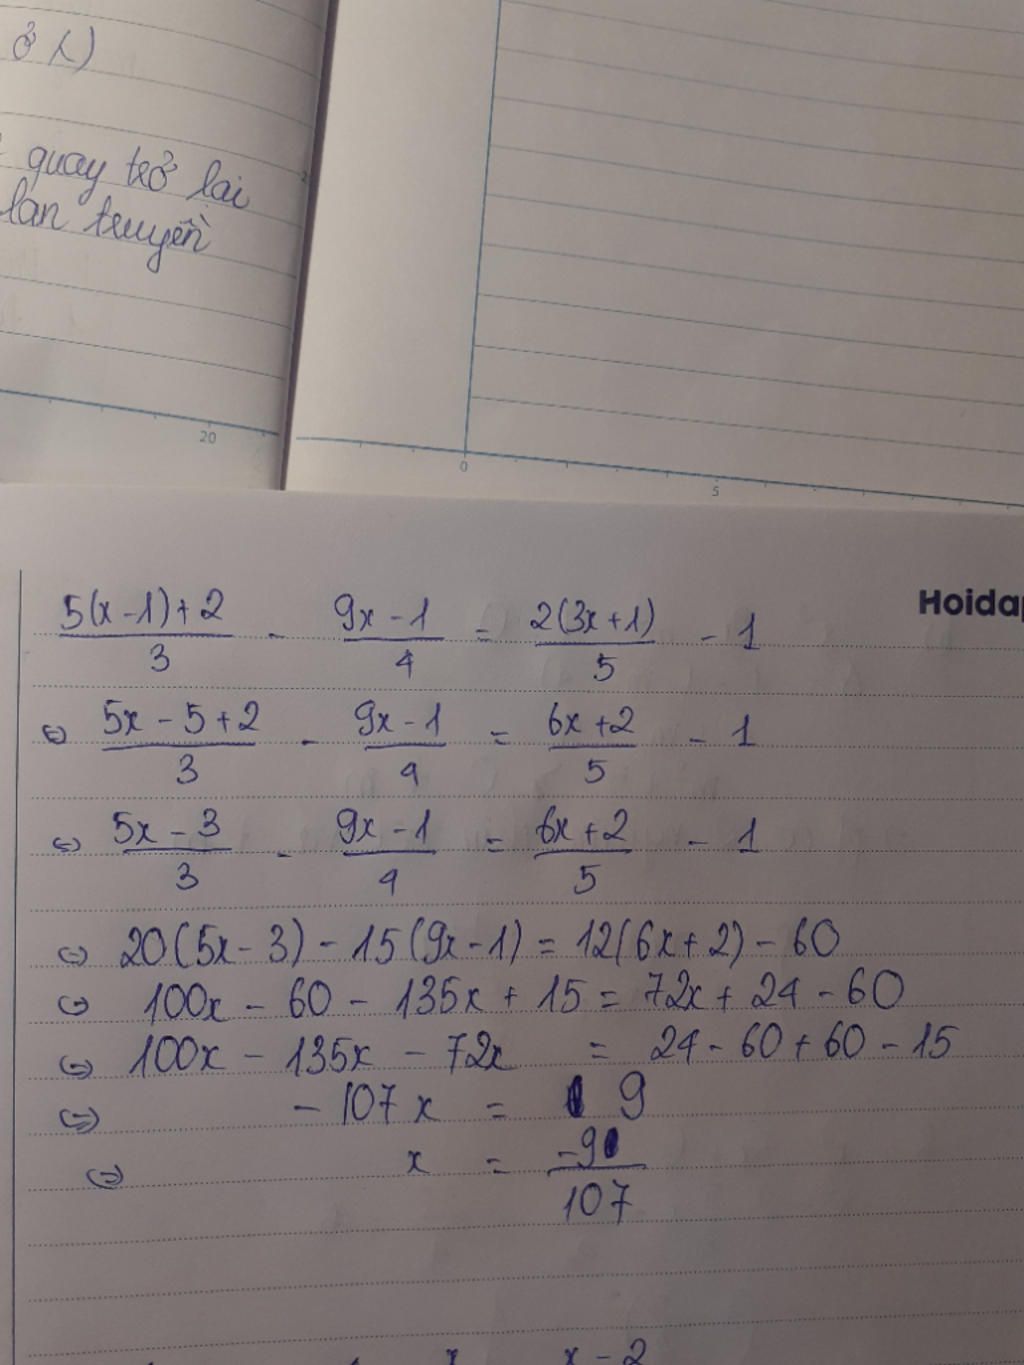 ở λ)
quay trở lại
lan truyền
20
0
5
Hoidap
5(x-1)+2/3 - 9x-1/4 = 2(3x+1)/5 - 1
⇔ 5x-5+2/3 - 9x-1/4 = 6x+2/5 - 1
⇔ 5x-3/3 - 9x-1/4 = 6x+2/5 - 1
⇔ 20(5x-3) - 15(9x-1) = 12(6x+2) - 60
⇔ 100x - 60 - 135x + 15 = 72x + 24 - 60
⇔ 100x - 135x - 72x = 24 - 60 + 60 - 15
⇔ -107x = 9
⇔ x = -9/107
x x-2